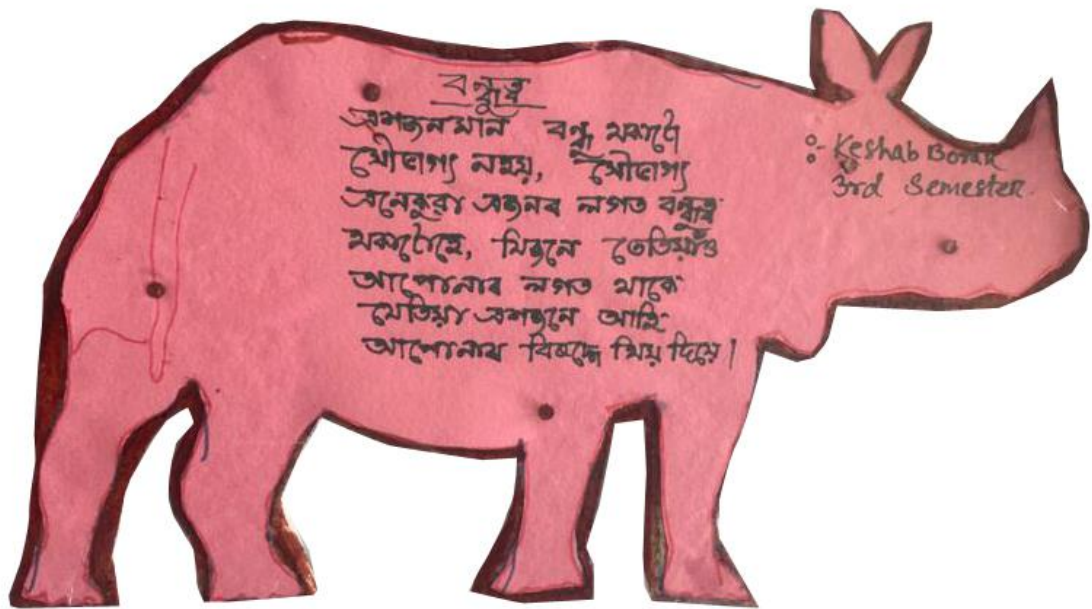 বন্ধুত্ব
এশজনমান বন্ধু থকাটো
সৌভাগ্য নহয়, সৌভাগ্য
এনেকুৱা এজনৰ লগত বন্ধুত্ব
থকাটোহে, যিজনে তেতিয়াও
আপোনাৰ লগত থাকে
যেতিয়া এশজনে আহি
আপোনাৰ বিৰুদ্ধে থিয় দিয়ে।
:- Keshab Borah
3rd Semester.